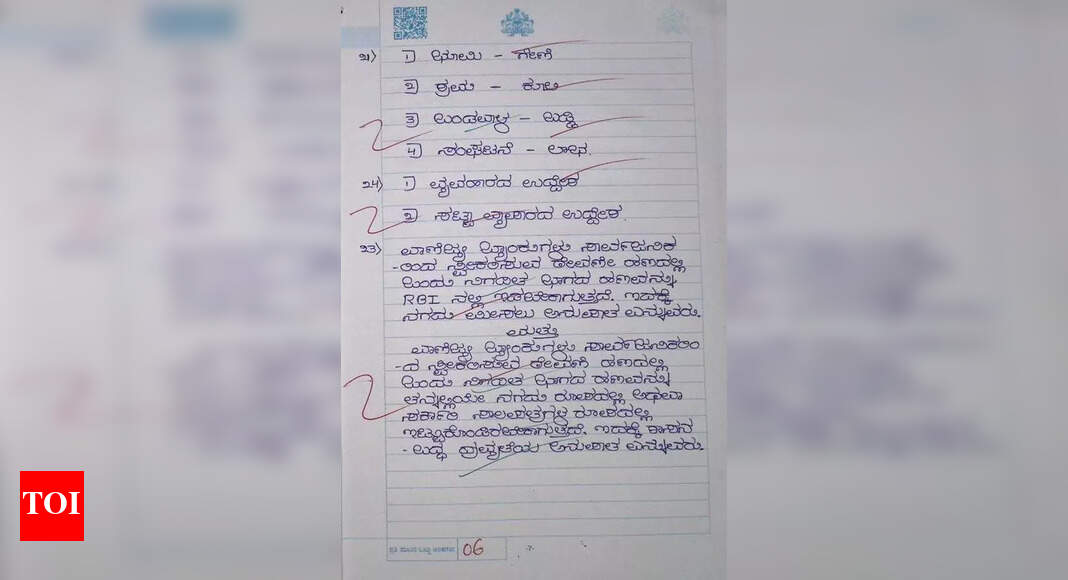 ೨೧) 1) ಭೂಮಿ - ಗೇಣಿ
2) ಶ್ರಮ - ಕೂಲಿ
3) ಬಂಡವಾಳ - ಬಡ್ಡಿ
4) ಸಂಘಟನೆ - ಲಾಭ.
೨೪) 1) ವ್ಯವಹಾರದ ಉದ್ದೇಶ
2) ಸಟ್ಟಾ ವ್ಯಾಪಾರದ ಉದ್ದೇಶ.
೨೨) ವಾಣಿಜ್ಯ ಬ್ಯಾಂಕುಗಳು ಸಾರ್ವಜನಿಕ
-ರಿಂದ ಸ್ವೀಕರಿಸುವ ಠೇವಣೀ ಹಣದಲ್ಲಿ
ಒಂದು ನಿಗದಿತ ಭಾಗದ ಹಣವನ್ನು
RBI ನಲ್ಲಿ ಇಡಬೇಕಾಗುತ್ತದೆ. ಇದಕ್ಕೆ
ನಗದು ಮೀಸಲು ಅನುಪಾತ ಎನ್ನುವರು.
ಮತ್ತು
ವಾಣಿಜ್ಯ ಬ್ಯಾಂಕುಗಳು ಸಾರ್ವಜನಿಕರಿಂ
-ದ ಸ್ವೀಕರಿಸುವ ಠೇವಣಿ ಹಣದಲ್ಲಿ
ಒಂದು ನಿಗದಿತ ಭಾಗದ ಹಣವನ್ನು
ತನ್ನಲ್ಲಿಯೇ ನಗದು ರೂಪದಲ್ಲಿ ಅಥವಾ
ಸರ್ಕಾರಿ ಸಾಲಪತ್ರಗಳ ರೂಪದಲ್ಲಿ
ಇಟ್ಟುಕೊಂಡಿರಬೇಕಾಗುತ್ತದೆ. ಇದಕ್ಕೆ ಶಾಸನ
-ಬದ್ಧ ದ್ರವ್ಯತೆಯ ಅನುಪಾತ ಎನ್ನುವರು.
TOI
ಪ್ರತಿ ಪುಟದ ಒಟ್ಟು ಅಂಕಗಳು 06